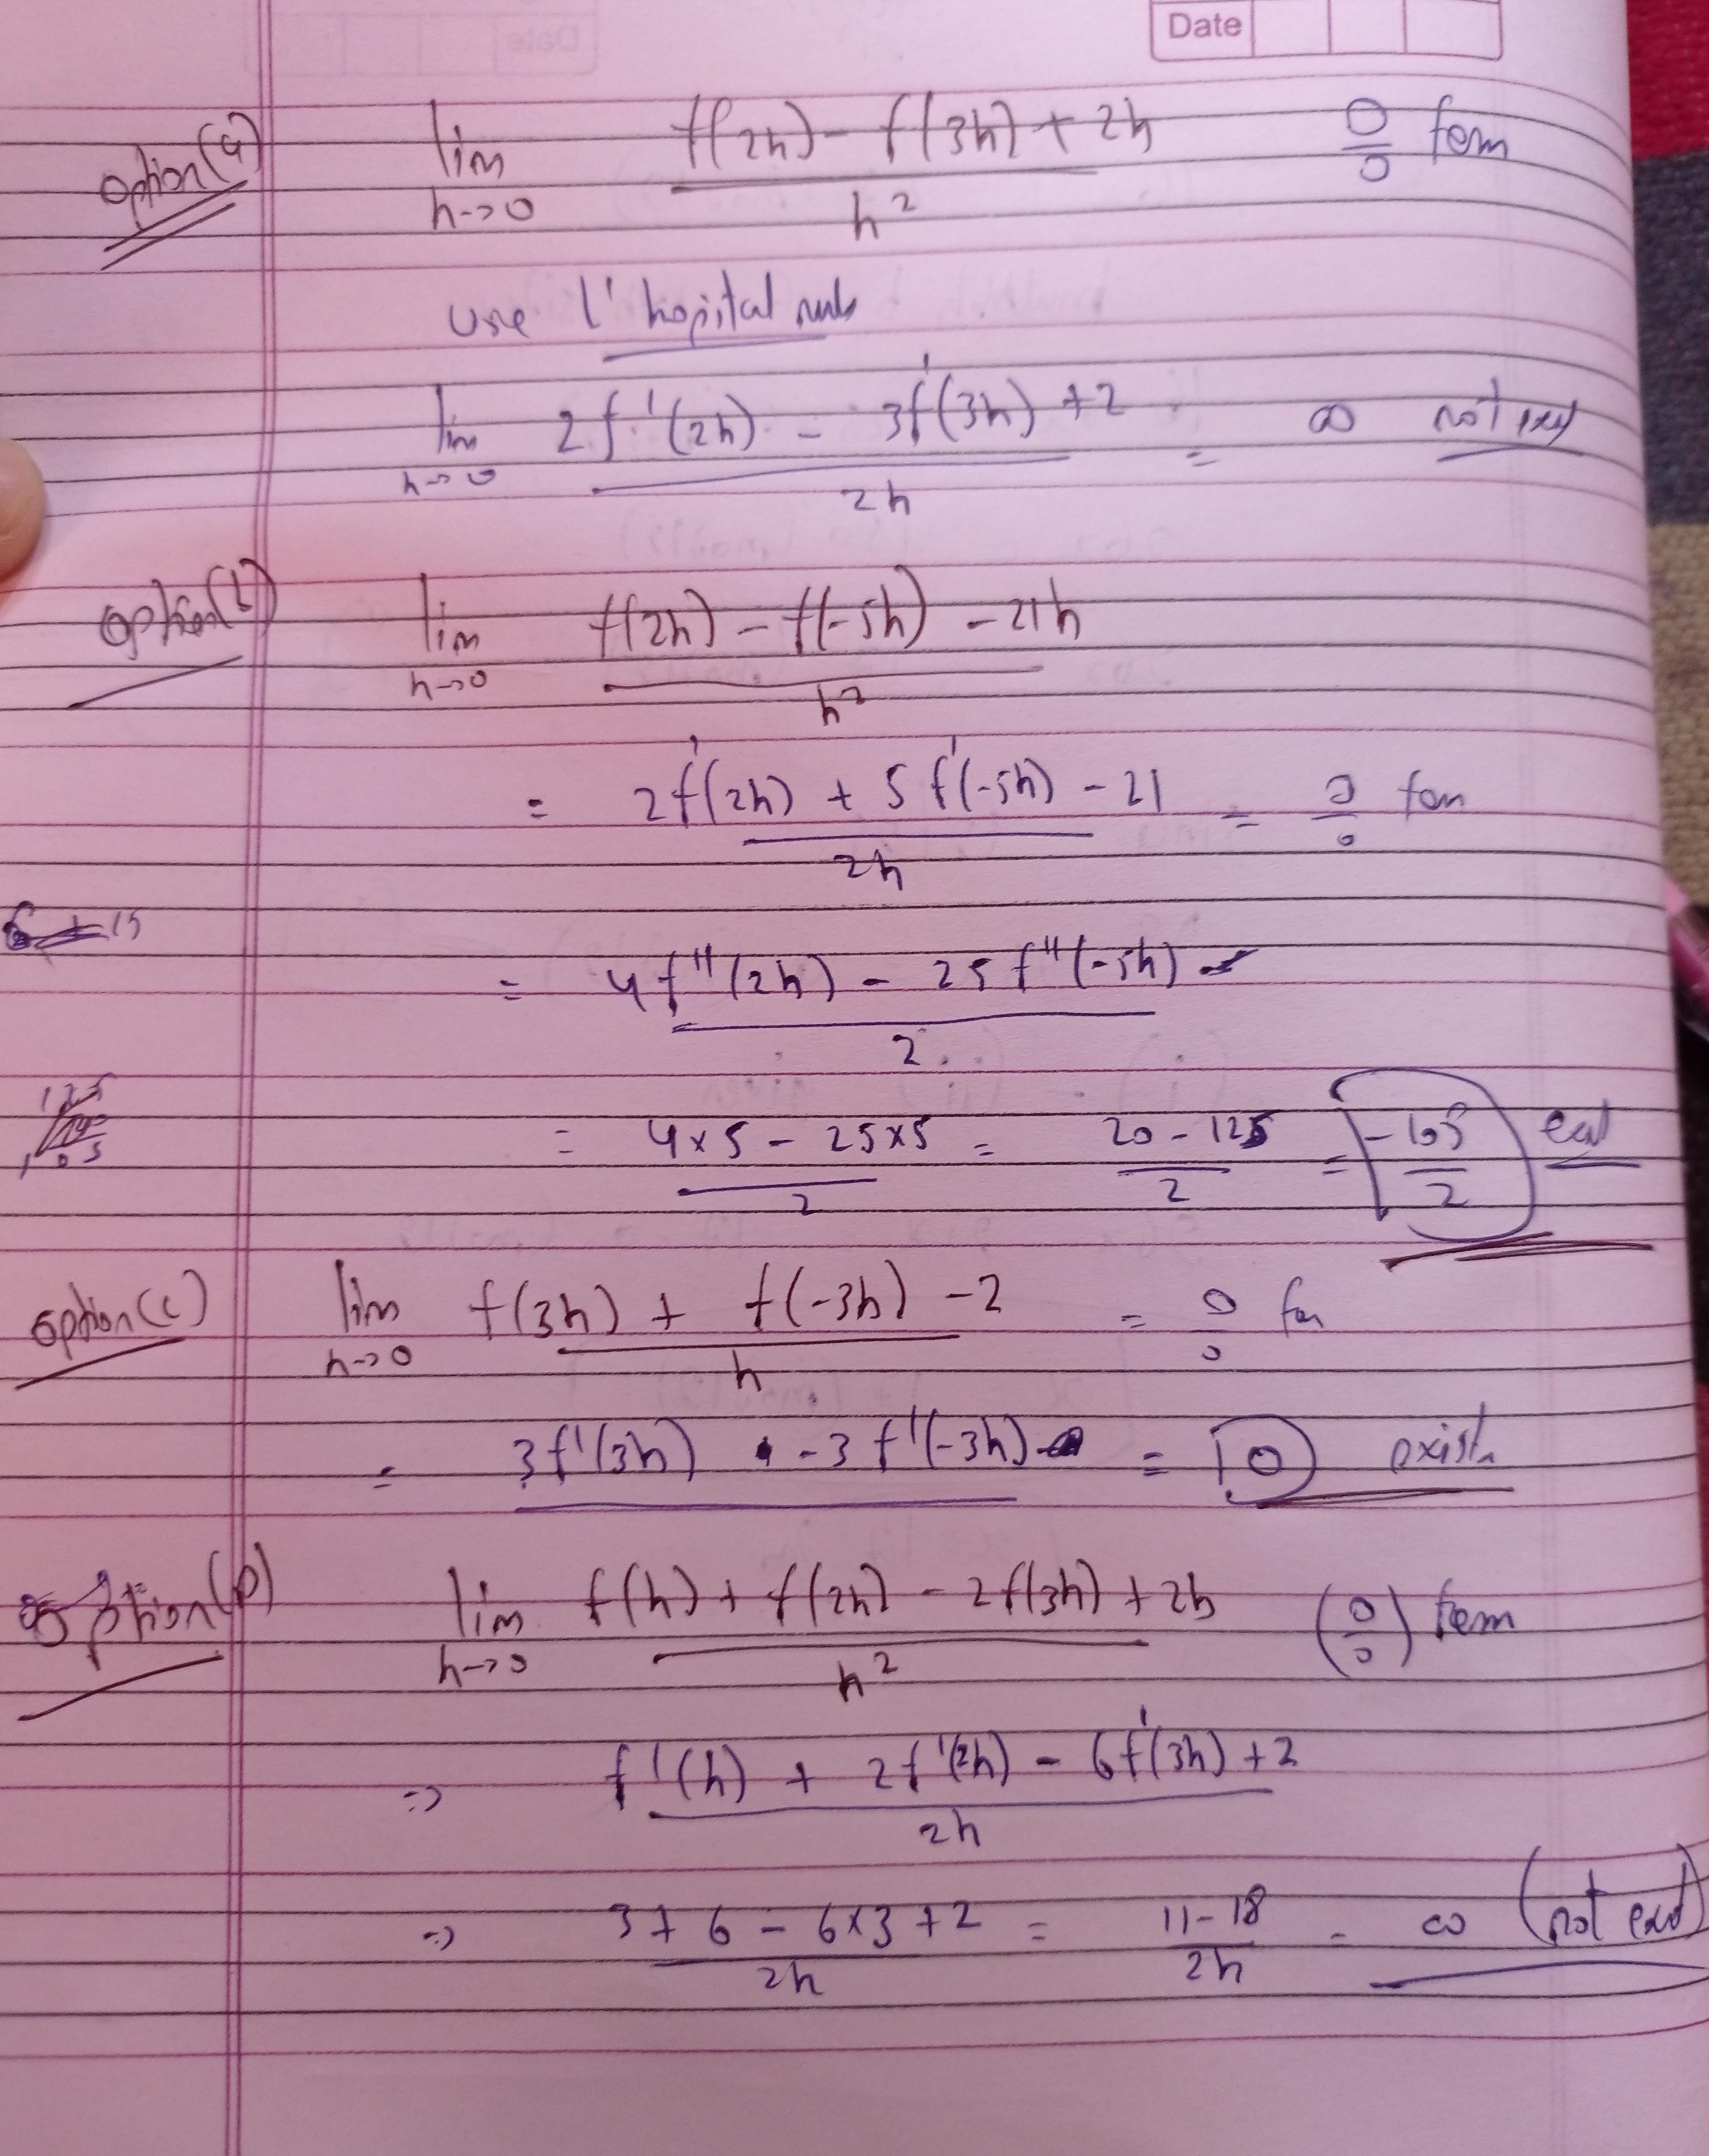 Date
option(a) lim h->0 f(2h) - f(3h) + 2h / h² 0/0 form
use l'hopital rule
lim h->0 2f'(2h) - 3f'(3h) + 2 / 2h = ∞ not exist
option(b) lim h->0 f(2h) - f(-5h) - 21h / h²
= 2f'(2h) + 5f'(-5h) - 21 / 2h = 0/0 form
15
= 4f''(2h) - 25f''(-5h) / 2
125
105
= 4×5 - 25×5 / 2 = 20 - 125 / 2 = -105/2 exist
option(c) lim h->0 f(3h) + f(-3h) - 2 / h = 0/0 for
= 3f'(3h) - 3f'(-3h) = 0 exist
option(D) lim h->0 f(h) + f(2h) - 2f(3h) + 2h / h² (0/0) form
=> f'(h) + 2f'(2h) - 6f'(3h) + 2 / 2h
=> 3 + 6 - 6×3 + 2 / 2h = 11 - 18 / 2h = ∞ (not exist)